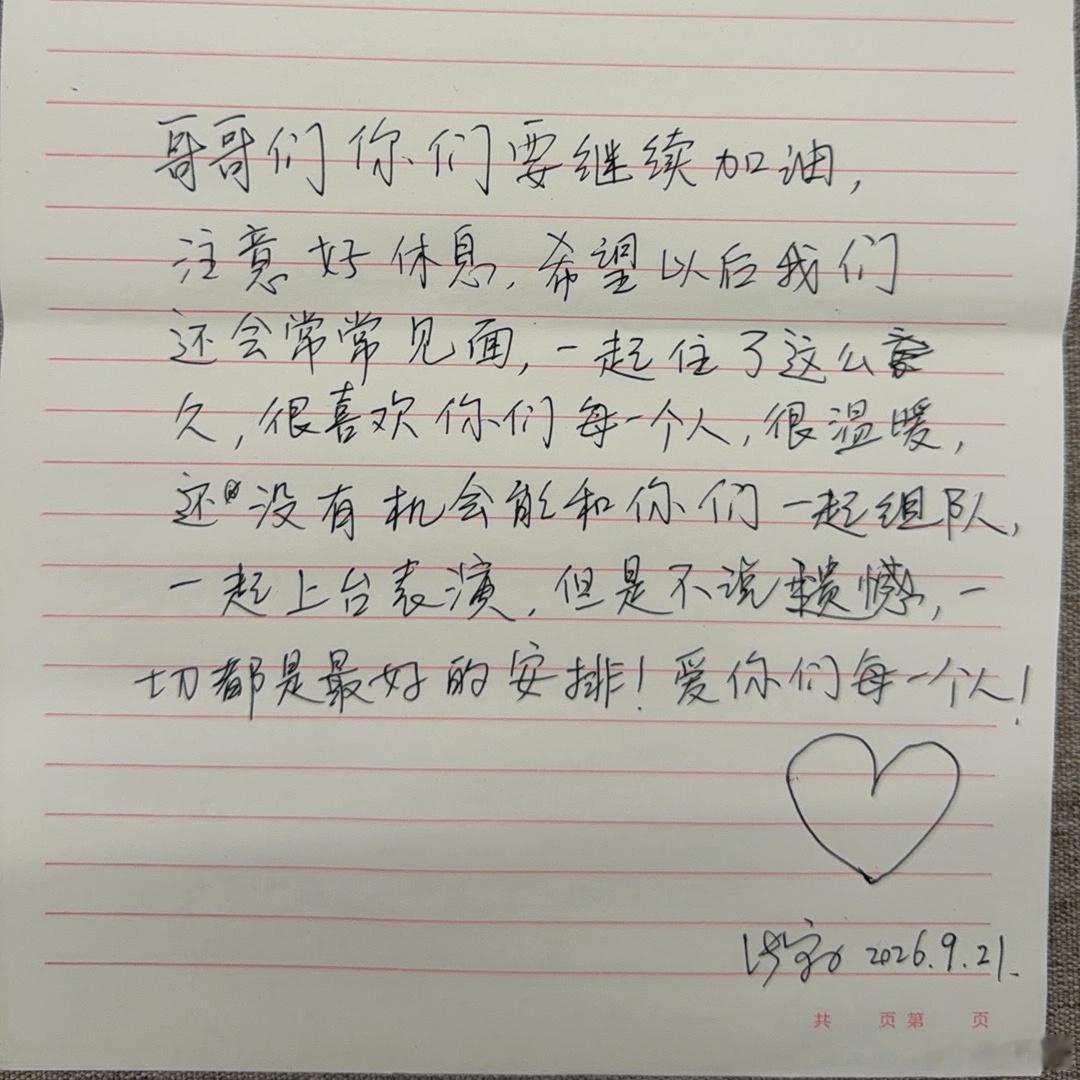 哥哥们你们要继续加油，
注意好休息，希望以后我们
还会常常见面，一起住了这么
久，很喜欢你们每一个人，很温暖，
还没有机会能和你们一起组队，
一起上台表演，但是不说遗憾，一
切都是最好的安排！爱你们每一个人！
2026.9.21.
共 页 第 页